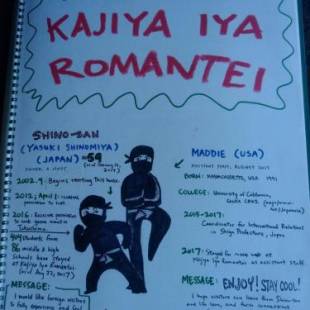 KAJIYA IYA
ROMANTEI
SHINO-SAN
(YASUKI SHINOMIYA)
(JAPAN) 59
2002.9: Begins renting this house.
2012; April: Receives
permission to rent
2016: Receives permission
to
Tokushima
students from
86 middle & high
schools have stayed
at Kajiya Iya Romantei
(as of Aug 27, 2017)
MESSAGE:
I would like foreign visitors
to fully experience and feel
MADDIE (USA)
ASSISTANT STAFF, AUGUST 2017
BORN: MASSACHUSETTS, USA 1991
COLLEGE: University of California,
SANTA CRUZ
2015-2017:
Coordinator for International Relations
in Shiga Prefecture, Japan
2017: Stayed for one week at
Kajiya Iya Romantei as assistant staff.
MESSAGE: ENJOY! STAY COOL!
I hope visitors can learn from Shino-san
and life here, and